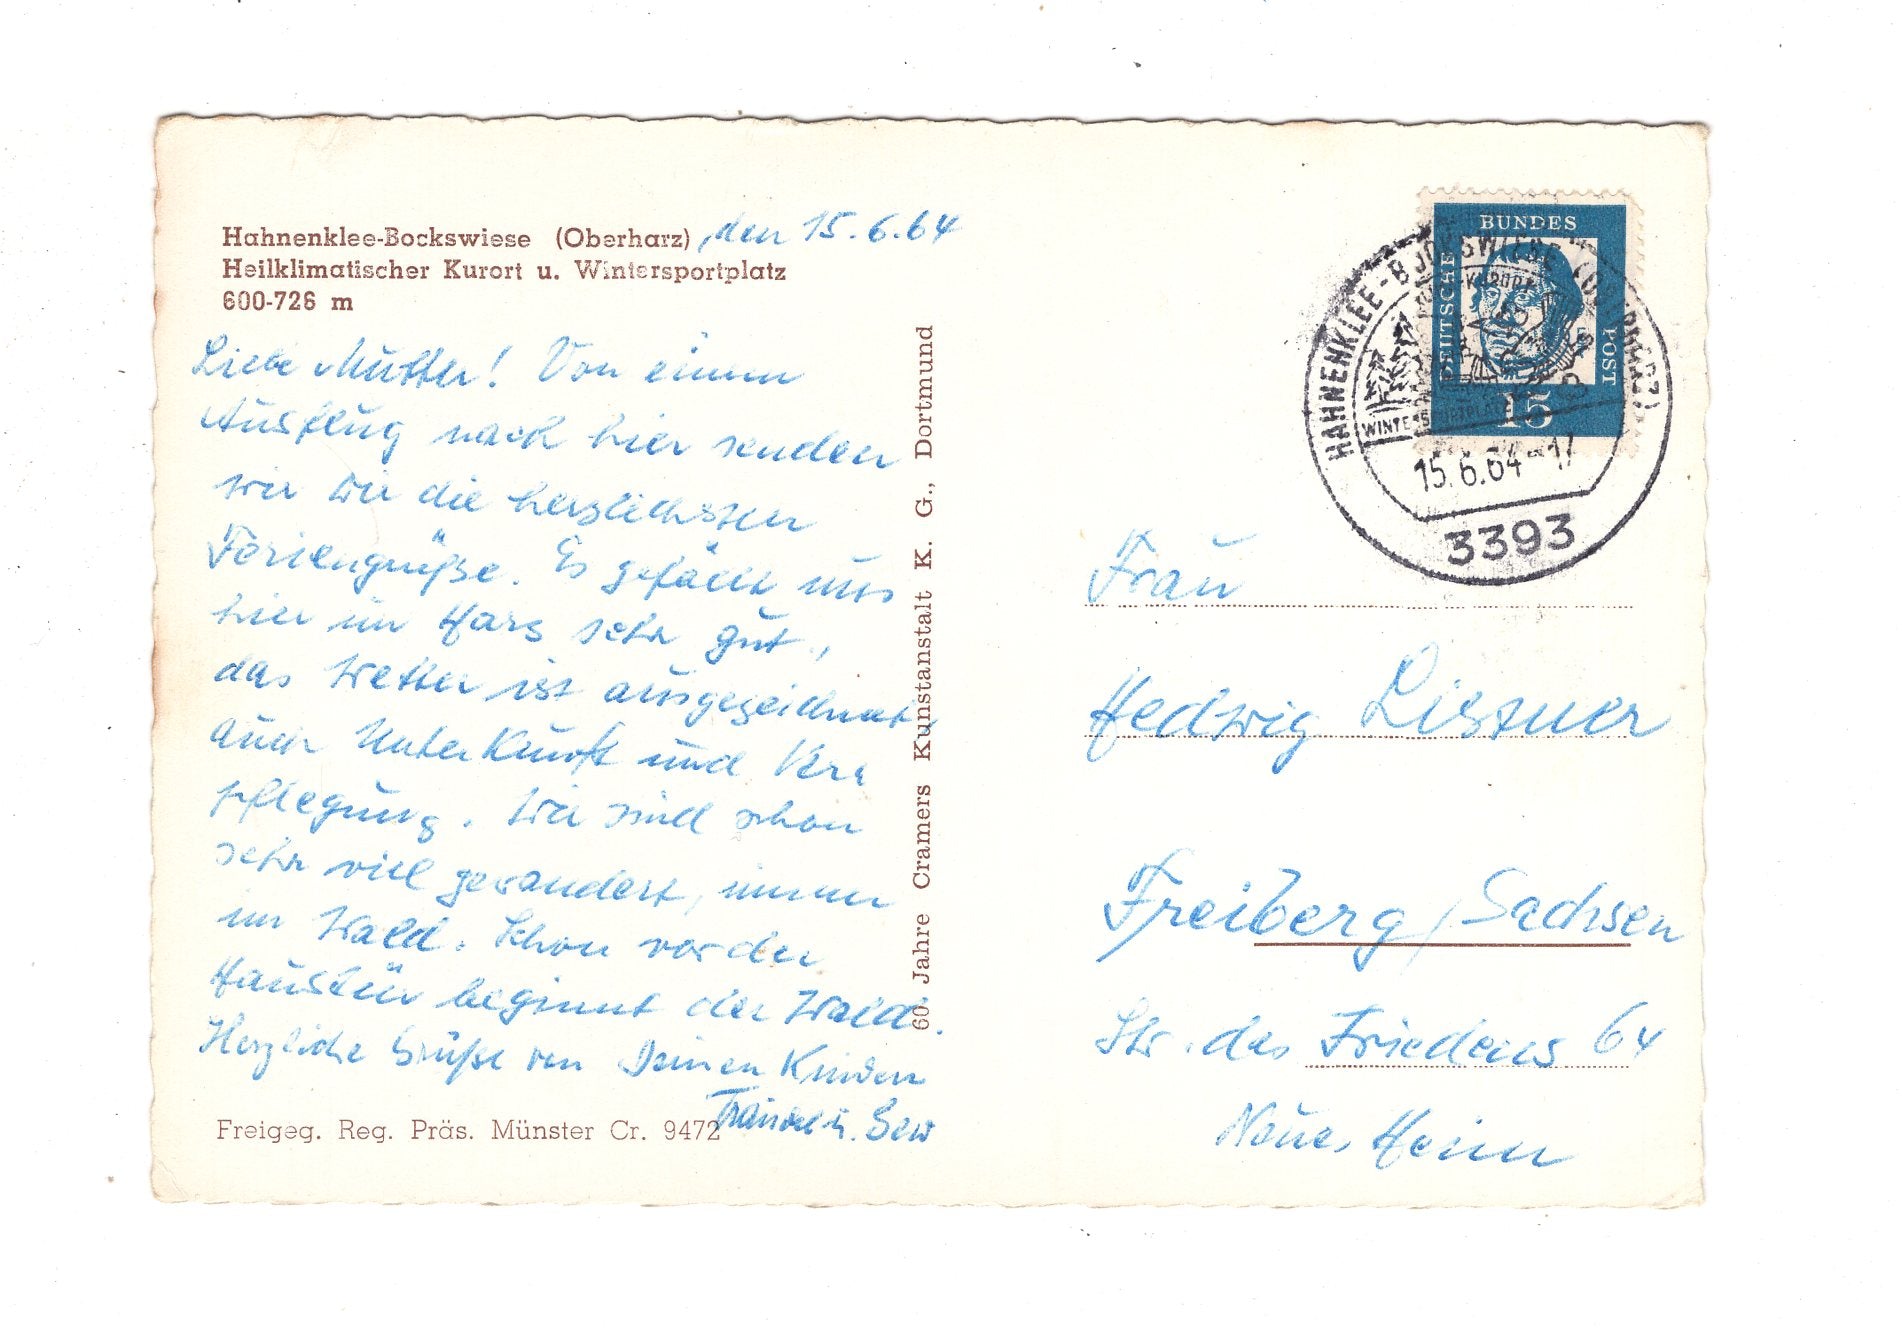 Hahnenklee-Bockswiese (Oberharz), den 15.6.64
Heilklimatischer Kurort u. Wintersportplatz
600-726 m
Liebe Mutter! Von einem
Ausflug nach hier senden
wir Dir die herzlichsten
Feriengrüße. Es gefällt uns
hier im Harz sehr gut,
das Wetter ist ausgezeichnet
auch Unterkunft und Ver
pflegung. Wir sind schon
sehr viel gewandert, immer
im Wald. Schon vor der
Haustür beginnt der Wald.
Herzliche Grüße von Deinen Kindern
u.
Freigeg. Reg. Präs. Münster Cr. 9472
60 Jahre Cramers Kunstanstalt K. G., Dortmund
BUNDES
DEUTSCHE
POST
15
HAHNENKLEE-BOCKSWIESE (OBERHARZ)
WINTERSPORTPLATZ
15.6.64-17
3393
Frau
Hedwig Listner
Freiberg/Sachsen
Str. des Friedens 64
Neues Heim